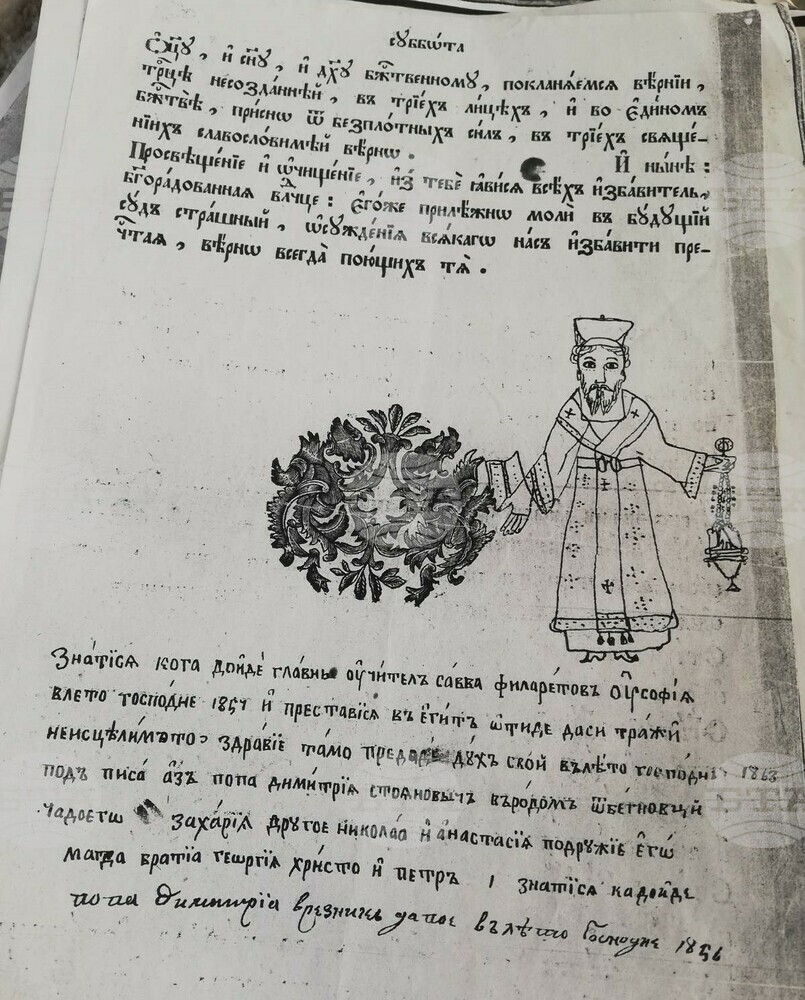 сꙋббѡ́та
Ѻ҆ц҃ꙋ, и҆ сн҃ꙋ, и҆ дх҃ꙋ бж҃твенномꙋ, покланѧ́емсѧ вѣ́рнїи,
трⷪ҇цѣ несозда́ннѣй, въ трїе́хъ ли́цѣхъ, и҆ во є҆ди́номъ
бж҃твѣ̀, при́снѡ ѿ безпло́тныхъ си́лъ, въ трїе́хъ свѧще́-
нїихъ славосло́вимѣй вѣ́рнѡ. И҆ ны́нѣ:
Просвѣще́нїе и҆ ѡ҆чище́нїе, и҆з̾ тебѐ ꙗ҆ви́сѧ всѣ́хъ и҆зба́витель,
бг҃ора́дованнаѧ влⷣчце: є҆го́же прилѣ́жнѡ молѝ въ бꙋ́дꙋщїй
сꙋ́дъ стра́шный, ѡ҆сꙋжде́нїѧ всѧ́кагѡ на́съ и҆зба́вити пре-
чⷭ҇таѧ, вѣ́рнѡ всегда̀ пою́щихъ тѧ̀.
Зна́тїсѧ кога до́йде гла́вны ѹ҆чи́телъ са́вва филаре́товъ ѹ҆ софїѧ
влето госпо́дне 1857 и҆ преста́висѧ въ є҆ги́птъ ѿтиде даси тражи
неисцѣли́мъто здра́вїе та́мо предаде дꙋ́хъ сво́й вълѣ́то госпо́дн 1863
подъ писа а҆зъ попа дими́трїѧ стояновычъ въро́домъ ѿбегновци
чадоегѡ заха́рїѧ дрꙋгое никола́а и҆ а҆наста́сїѧ подрꙋ́жїе е҆гѡ
магда братїа георгїѧ хри́сто и҆ петръ і зна́тїсѧ кадойде
попа димитрїа врезникъ да пое въ лѣто Господне 1856